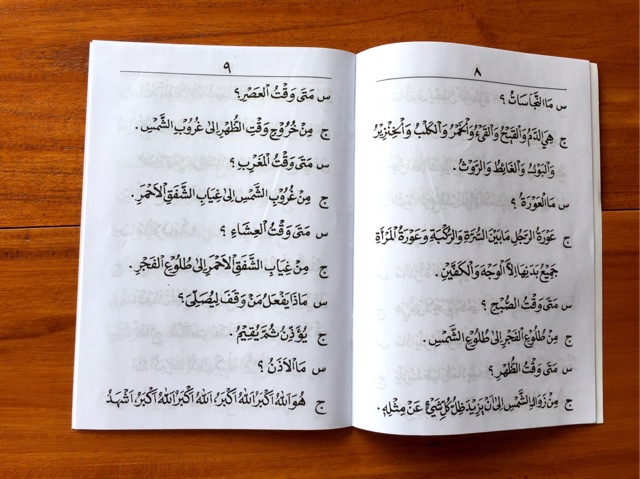 ٨
س مَا النَّجَاسَاتُ ؟
ج هِيَ الدَّمُ وَالْقَيْحُ وَالْقَيْءُ وَالْخَمْرُ وَالْكَلْبُ وَالْخِنْزِيْرُ
وَالْبَوْلُ وَالْغَائِطُ وَالرَّوْثُ.
س مَا الْعَوْرَةُ ؟
ج عَوْرَةُ الرَّجُلِ مَا بَيْنَ السُّرَّةِ وَالرُّكْبَةِ وَعَوْرَةُ الْمَرْأَةِ
جَمِيْعُ بَدَنِهَا إِلاَّ الْوَجْهَ وَالْكَفَّيْنِ.
س مَتَى وَقْتُ الصُّبْحِ ؟
ج مِنْ طُلُوْعِ الْفَجْرِ إِلَى طُلُوْعِ الشَّمْسِ.
س مَتَى وَقْتُ الظُّهْرِ ؟
ج مِنْ زَوَالِ الشَّمْسِ إِلَى أَنْ يَزِيْدَ ظِلُّ كُلِّ شَيْءٍ عَنْ مِثْلِهِ.
٩
س مَتَى وَقْتُ الْعَصْرِ؟
ج مِنْ خُرُوْجِ وَقْتِ الظُّهْرِ إِلَى غُرُوْبِ الشَّمْسِ.
س مَتَى وَقْتُ الْمَغْرِبِ؟
ج مِنْ غُرُوْبِ الشَّمْسِ إِلَى غِيَابِ الشَّفَقِ الْأَحْمَرِ.
س مَتَى وَقْتُ الْعِشَاءِ ؟
ج مِنْ غِيَابِ الشَّفَقِ الْأَحْمَرِ إِلَى طُلُوْعِ الْفَجْرِ.
س مَاذَا يَفْعَلُ مَنْ وَقَفَ لِيُصَلِّىَ؟
ج يُؤَذِّنُ ثُمَّ يُقِيْمُ.
س مَا الْأَذَنُ ؟
ج هُوَ اللهُ أَكْبَرُ اللهُ أَكْبَرُ، اللهُ أَكْبَرُ اللهُ أَكْبَرُ، أَشْهَدُ